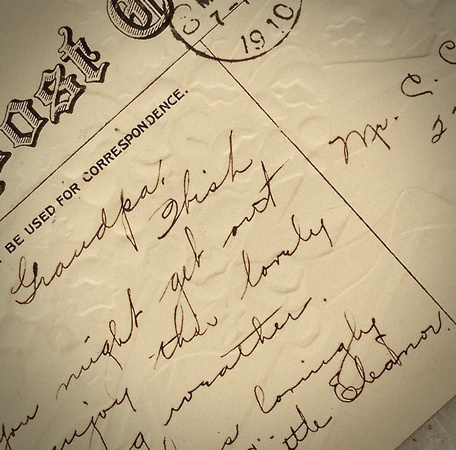 Post
7-
1910
BE USED FOR CORRESPONDENCE.
Mr. C. C
2
Grandpa,
I wish
you might get out
enjoy this lovely
g weather.
s lovingly
ittle Eleanor.